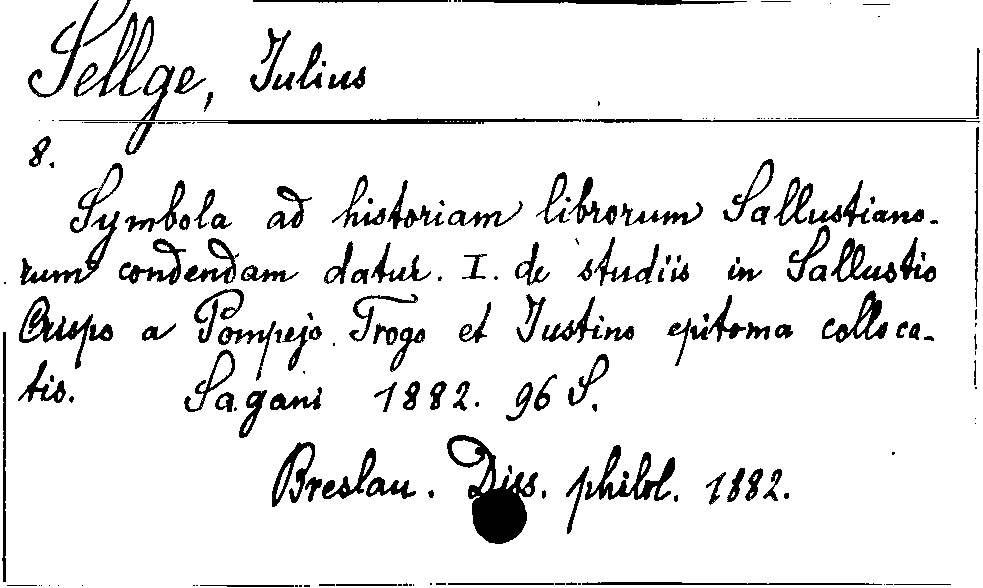 Sellge, Iulius
8.
Symbola ad historiam librorum Sallustiano-
rum condendam datur. I. de studiis in Sallustio
Crispo a Pompejo Trogo et Iustino epitoma colloca-
tis. Sagani 1882. 96 S.
Breslau. Diss. philol. 1882.